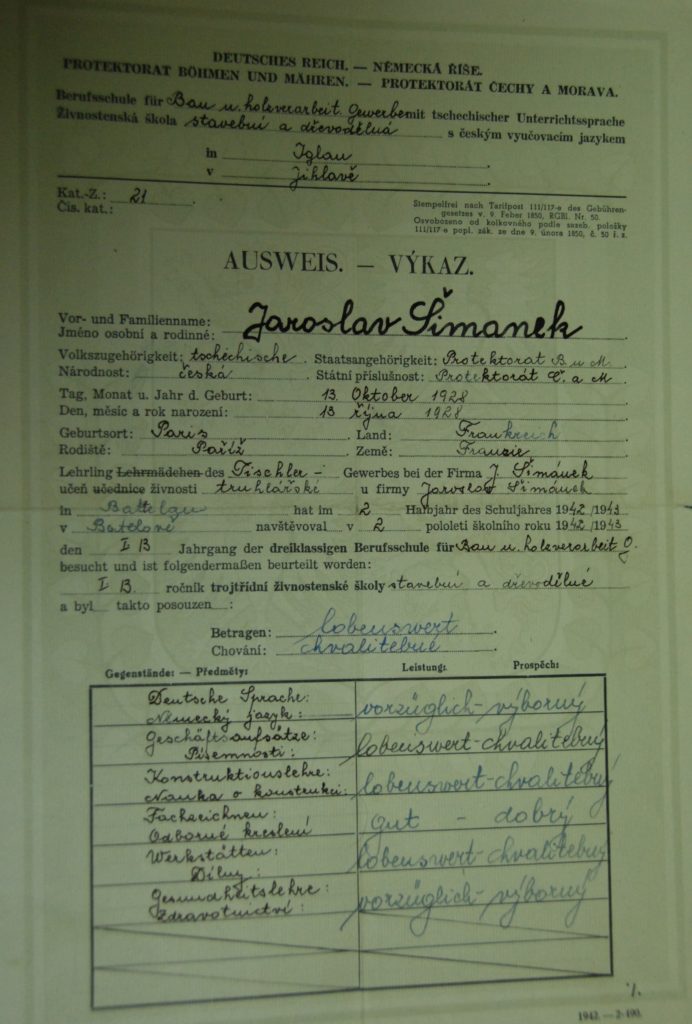 DEUTSCHES REICH. — NĚMECKÁ ŘÍŠE.
PROTEKTORAT BÖHMEN UND MÄHREN. — PROTEKTORÁT ČECHY A MORAVA.
Berufsschule für Bau u. holzverarbeit. Gewerbe mit tschechischer Unterrichtssprache
Živnostenská škola stavební a dřevodělná s českým vyučovacím jazykem
in Iglau
v Jihlavě
Kat.-Z.: 21
Čís. kat.:
Stempelfrei nach Tarifpost 111/117-e des Gebühren-
gesetzes v. 9. Feber 1850, RGBl. Nr. 50.
Osvobozeno od kolkovného podle sazeb. položky
111/117-e popl. zák. ze dne 9. února 1850, č. 50 ř. z.
AUSWEIS. — VÝKAZ.
Vor- und Familienname:
Jméno osobní a rodinné: Jaroslav Šimanek
Volkszugehörigkeit: tschechische. Staatsangehörigkeit: Protektorat B. u. M.
Národnost: česká Státní příslušnost: Protektorát Č. a M.
Tag, Monat u. Jahr d. Geburt: 13. Oktober 1928
Den, měsíc a rok narození: 13 října 1928
Geburtsort: Paris Land: Frankreich
Rodiště: Paříž Země: Francie
Lehrling Lehrmädchen des Tischler - Gewerbes bei der Firma J. Šimánek
učeň učednice živnosti truhlářské u firmy Jaroslav Šimánek
in Battelau hat im 2 Halbjahr des Schuljahres 1942/1943
v Batelově navštěvoval v 2 pololetí školního roku 1942/1943
den I B Jahrgang der dreiklassigen Berufsschule für Bau u. holzverarbeit. G.
besucht und ist folgendermaßen beurteilt worden:
I B. ročník trojtřídní živnostenské školy stavební a dřevodělné
a byl takto posouzen:
Betragen: lobenswert
Chování: chvalitebné
Gegenstände: — Předměty: Leistung: Prospěch:
Deutsche Sprache:
Německý jazyk: vorzüglich - výborný
Geschäftsaufsätze:
Písemnosti: lobenswert - chvalitebný
Konstruktionslehre:
Nauka o konstrukci: lobenswert - chvalitebný
Fachzeichnen:
Odborné kreslení gut - dobrý
Werkstätten:
Dílny: lobenswert - chvalitebný
Gesundheitslehre:
Zdravotnictví: vorzüglich - výborný
·/.
1942. — 2-490.